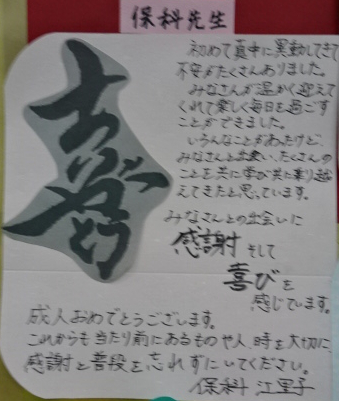 保科先生
喜
初めて真中に異動してきて
不安がたくさんありました。
みなさんが温かく迎えて
くれて楽しく毎日を過ごす
ことができました。
いろんなことがあったけど、
みなさんと出会い、たくさんの
ことを共に学び共に乗り越
えてきたと思っています。
みなさんとの出会いに
感謝そして
喜びを
感じています。
成人おめでとうございます。
これからも当たり前にあるものや人、時を大切に、
感謝と普段を忘れずにいてください。
保科 江里子